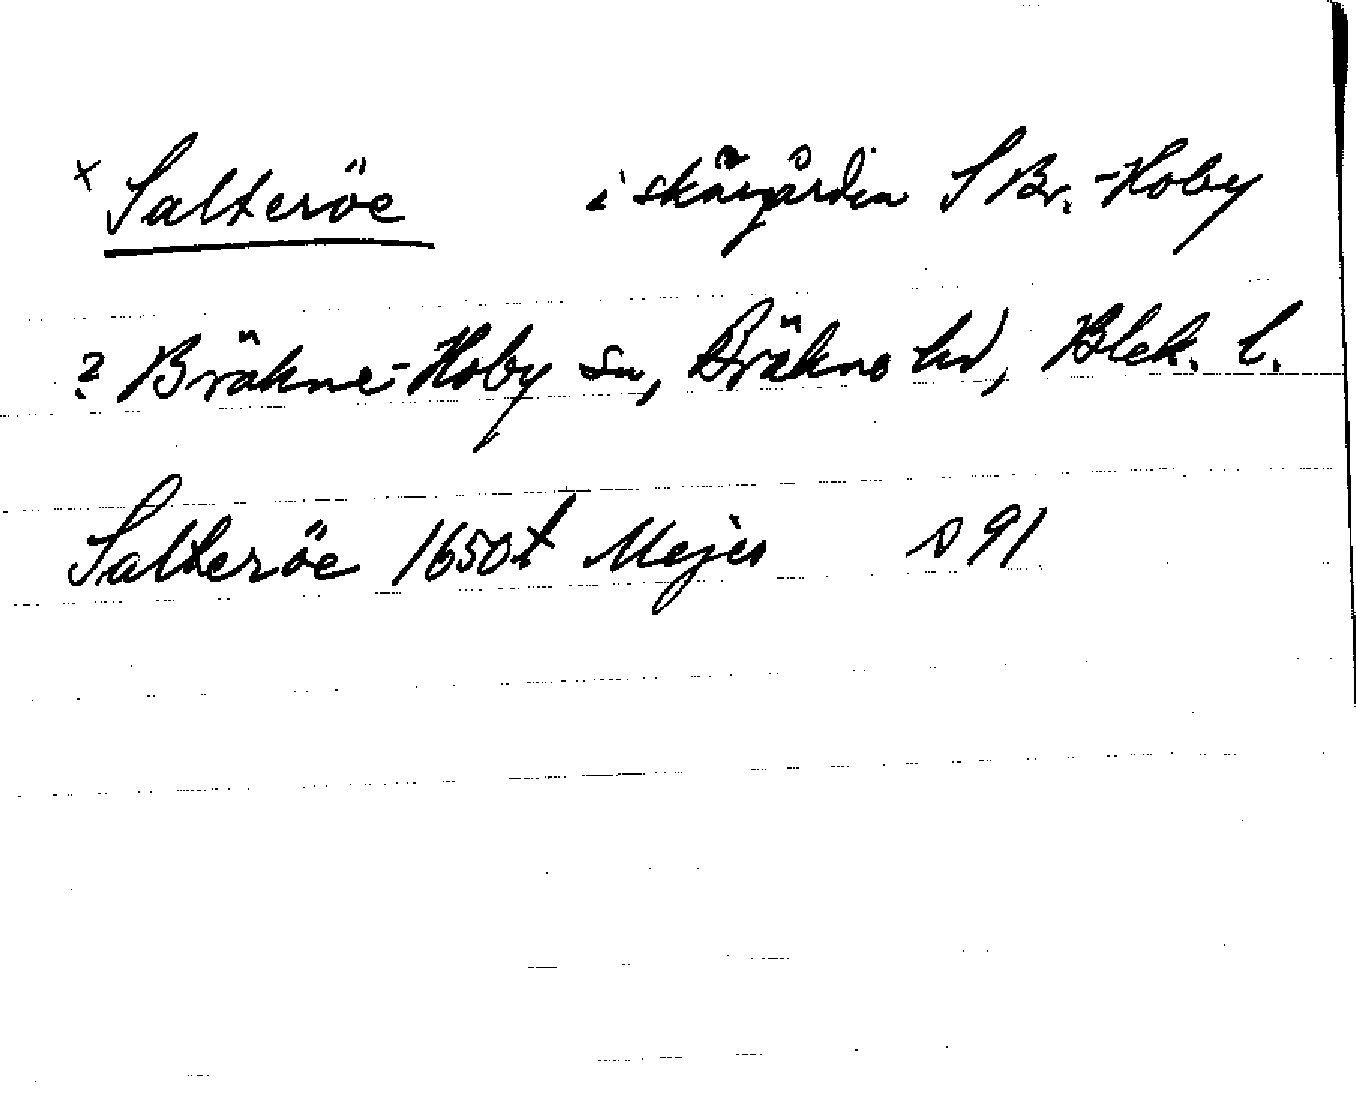 x Salteröe i skärgården S Br.-Hoby
? Bräkne-Hoby sn, Bräkne hd, Blek. l.
Salteröe 1650t Mejer s 91